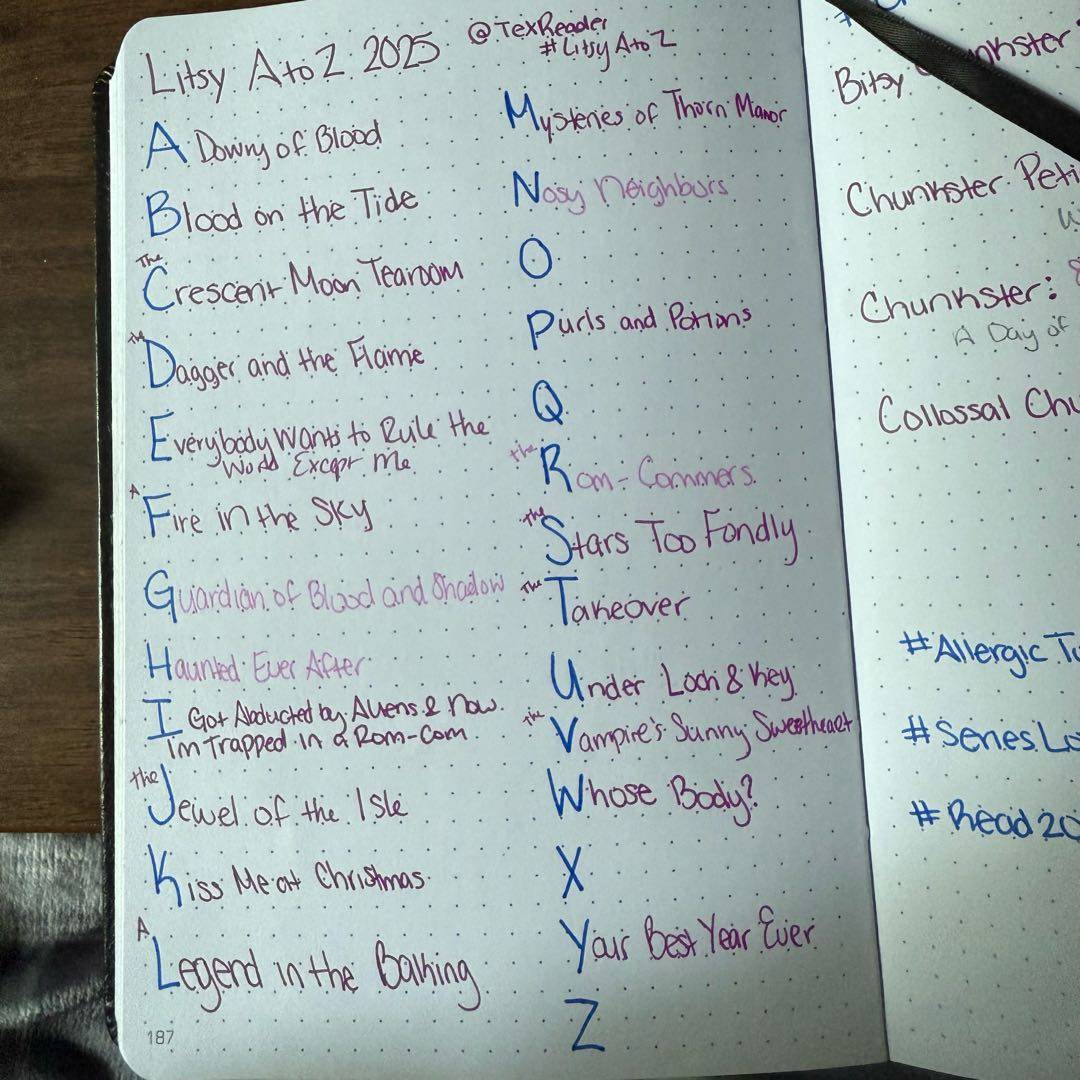 Litsy A to Z 2025
@TexReader
#LitsyAtoZ
A Dowry of Blood
Blood on the Tide
The Crescent Moon Tearoom
The Dagger and the Flame
Everybody Wants to Rule the
World Except Me
A Fire in the Sky
Guardian of Blood and Shadow
Haunted Ever After
I Got Abducted by Aliens & Now
I'm Trapped in a Rom-Com
The Jewel of the Isle
Kiss Me at Christmas
A Legend in the Baking
187
Mysteries of Thorn Manor
Nosy Neighbors
O
Purls and Potions
Q
The Rom-Commers
The Stars Too Fondly
The Takeover
Under Loch & Key
The Vampire's Sunny Sweetheart
Whose Body?
X
Your Best Year Ever
Z
Bitsy Chunkster
Chunkster Peti
Chunkster:
A Day of
Collossal Chu
#Allergic Tu
#SeriesLo
#Read20